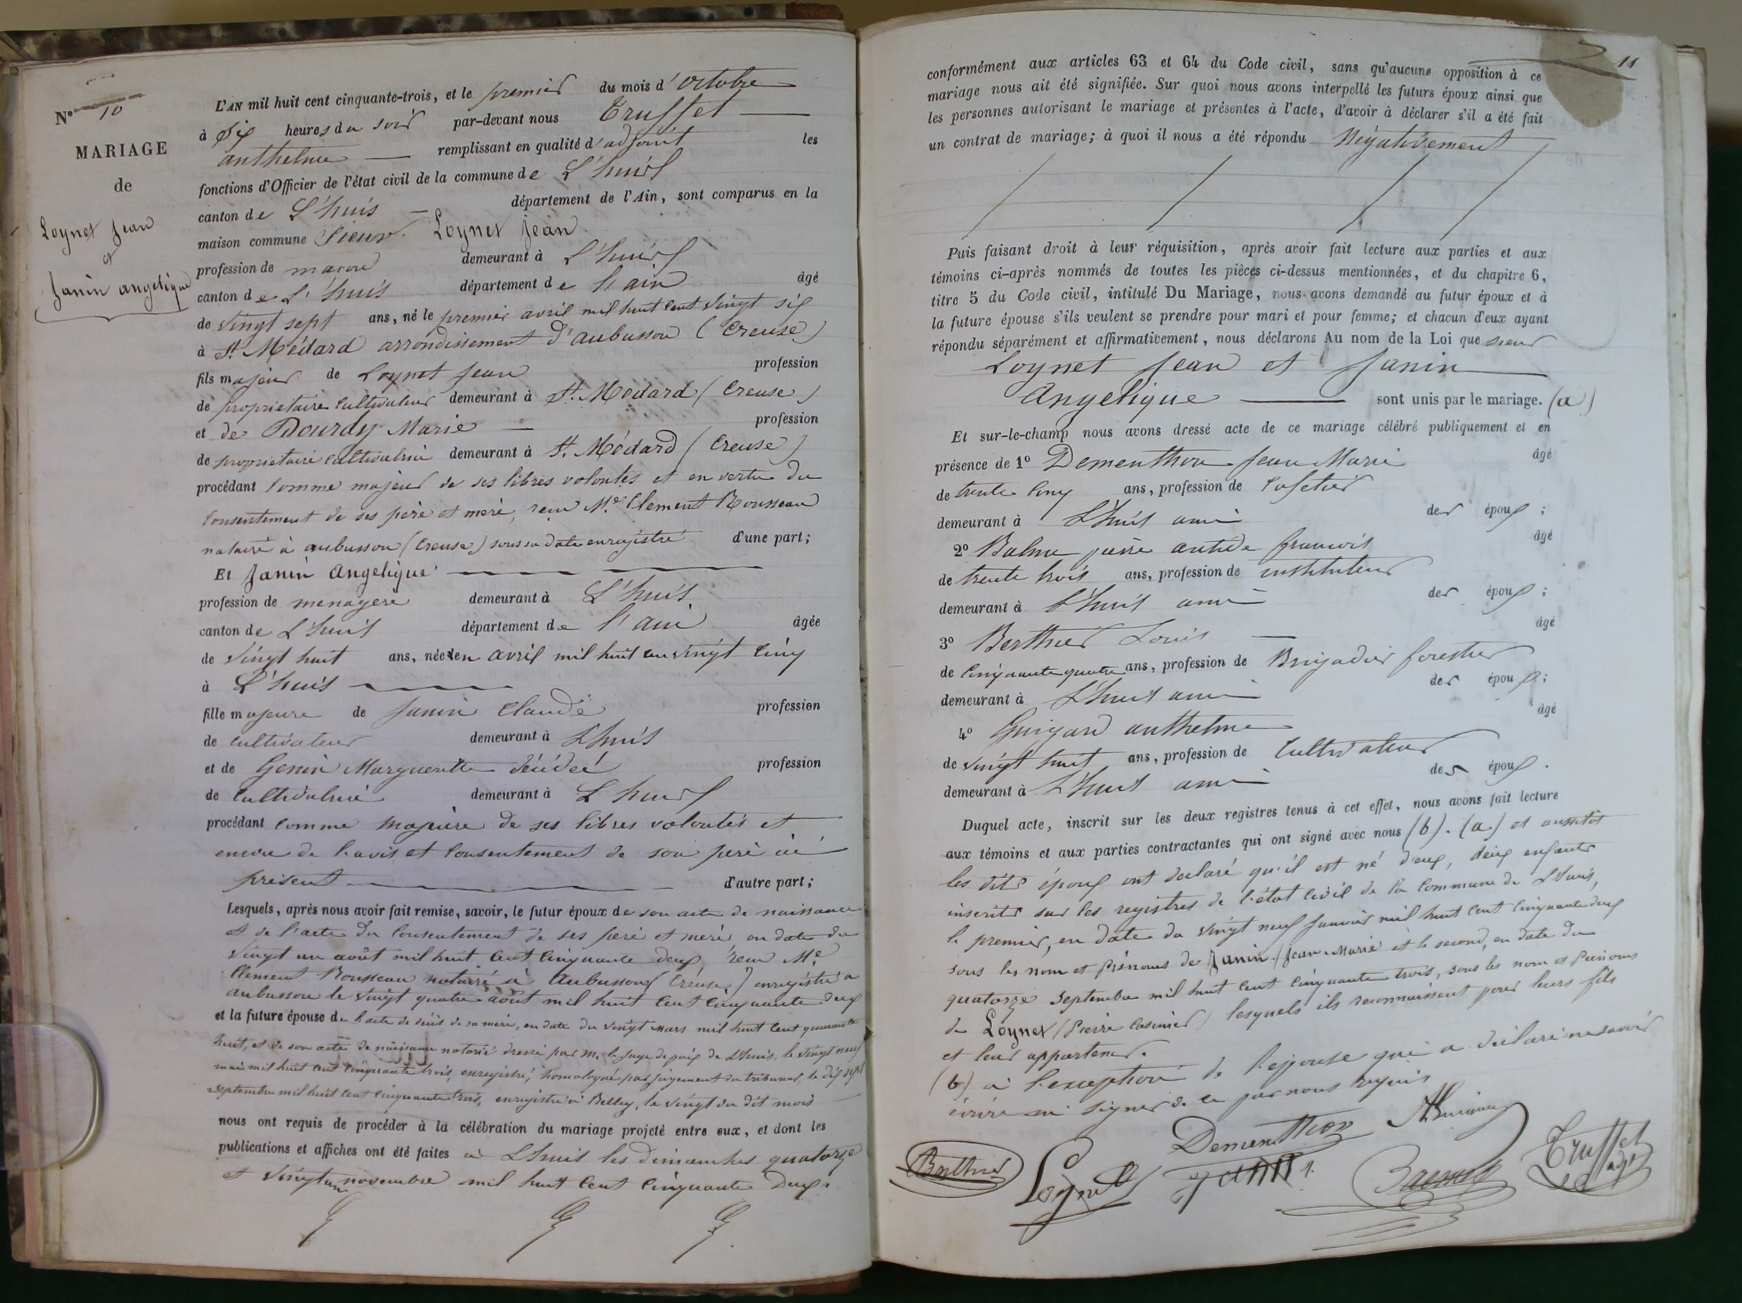 N° 10
MARIAGE
de
Loynet Jean
et
Janin angelique
L'AN mil huit cent cinquante-trois, et le premier du mois d'octobre
à six heures du soir par-devant nous Truffet
anthelme remplissant en qualité d'adjoint les
fonctions d'Officier de l'état civil de la commune de L'huis
canton de L'huis département de l'Ain, sont comparus en la
maison commune Sieur Loynet Jean
profession de macon demeurant à L'huis
canton de L'huis département de l'ain âgé
de vingt sept ans, né le premier avril mil huit cent vingt six
à St Médard arrondissement d'aubusson (Creuse)
fils majeur de Loynet Jean profession
de propriétaire cultivateur demeurant à St Médard (Creuse)
et de Dourdy Marie profession
de propriétaire cultivatrice demeurant à St Médard (Creuse)
procédant comme majeur de ses libres volontés et en vertu du
consentement de ses père et mère, recu Me Clement Rousseau
notaire à aubusson (Creuse) sous sa date enregistré d'une part;
Et Janin Angelique
profession de menagere demeurant à L'huis
canton de L'huis département de l'ain âgée
de vingt huit ans, née en avril mil huit cent vingt cinq
à L'huis
fille majeure de Janin Claude profession
de cultivateur demeurant à L'huis
et de Genin Marguerite décédée profession
de cultivatrice demeurant à L'huis
procédant comme majeure de ses libres volontés et
encore de l'avis et consentement de son père ici
présent d'autre part;
Lesquels, après nous avoir fait remise, savoir, le futur époux de son acte de naissance
et de l'acte du consentement de ses père et mère en date du
vingt un août mil huit cent cinquante deux, recu Me
Clement Rousseau notaire à Aubusson (Creuse) enregistré a
aubusson le vingt quatre août mil huit cent cinquante deux
et la future épouse de l'acte de décès de sa mère, en date du vingt mars mil huit cent quarante
huit, et de son acte de naissance notorié dressé par M. le juge de paix de L'huis, le vingt neuf
mai mil huit cent cinquante trois, enregistré, homologué par jugement du tribunal, le dix sept
septembre mil huit cent cinquante trois, enregistré à Belley, le vingt du dit mois
nous ont requis de procéder à la célébration du mariage projeté entre eux, et dont les
publications et affiches ont été faites à L'huis les dimanches quatorze
et vingt un novembre mil huit cent cinquante deux
11
conformément aux articles 63 et 64 du Code civil, sans qu'aucune opposition à ce
mariage nous ait été signifiée. Sur quoi nous avons interpellé les futurs époux ainsi que
les personnes autorisant le mariage et présentes à l'acte, d'avoir à déclarer s'il a été fait
un contrat de mariage; à quoi il nous a été répondu Négativement
Puis faisant droit à leur réquisition, après avoir fait lecture aux parties et aux
témoins ci-après nommés de toutes les pièces ci-dessus mentionnées, et du chapitre 6,
titre 5 du Code civil, intitulé Du Mariage, nous avons demandé au futur époux et à
la future épouse s'ils veulent se prendre pour mari et pour femme; et chacun d'eux ayant
répondu séparément et affirmativement, nous déclarons Au nom de la Loi que sieur
Loynet Jean et Janin
Angelique sont unis par le mariage. (a)
Et sur-le-champ nous avons dressé acte de ce mariage célébré publiquement et en
présence de 1° Dementhon Jean Marie âgé
de trente cinq ans, profession de cafetier
demeurant à L'huis ami des époux;
2° Balme pierre antide francois âgé
de trente trois ans, profession de instituteur
demeurant à L'huis ami des époux;
3° Berthier Louis âgé
de cinquante quatre ans, profession de Brigadier forestier
demeurant à L'huis ami des époux;
4° Guigard anthelme âgé
de vingt huit ans, profession de cultivateur
demeurant à L'huis ami des époux.
Duquel acte, inscrit sur les deux registres tenus à cet effet, nous avons fait lecture
aux témoins et aux parties contractantes qui ont signé avec nous (b). (a) et aussitôt
les dits époux ont déclaré qu'il est né d'eux, deux enfants
inscrits sur les registres de l'état civil de la commune de L'huis,
le premier, en date du vingt neuf janvier mil huit cent cinquante deux
sous les nom et prénoms de Janin (Jean-Marie et le second, en date du
quatorze septembre mil huit cent cinquante trois, sous les nom et prénoms
de Loynet (Pierre Casimir) lesquels ils reconnaissent pour leurs fils
et leur appartenir.
(b) à l'exception de l'épouse qui a déclaré ne savoir
écrire ni signer de ce par nous requis
Berthier Loynet Dementhon Truffet
adjt